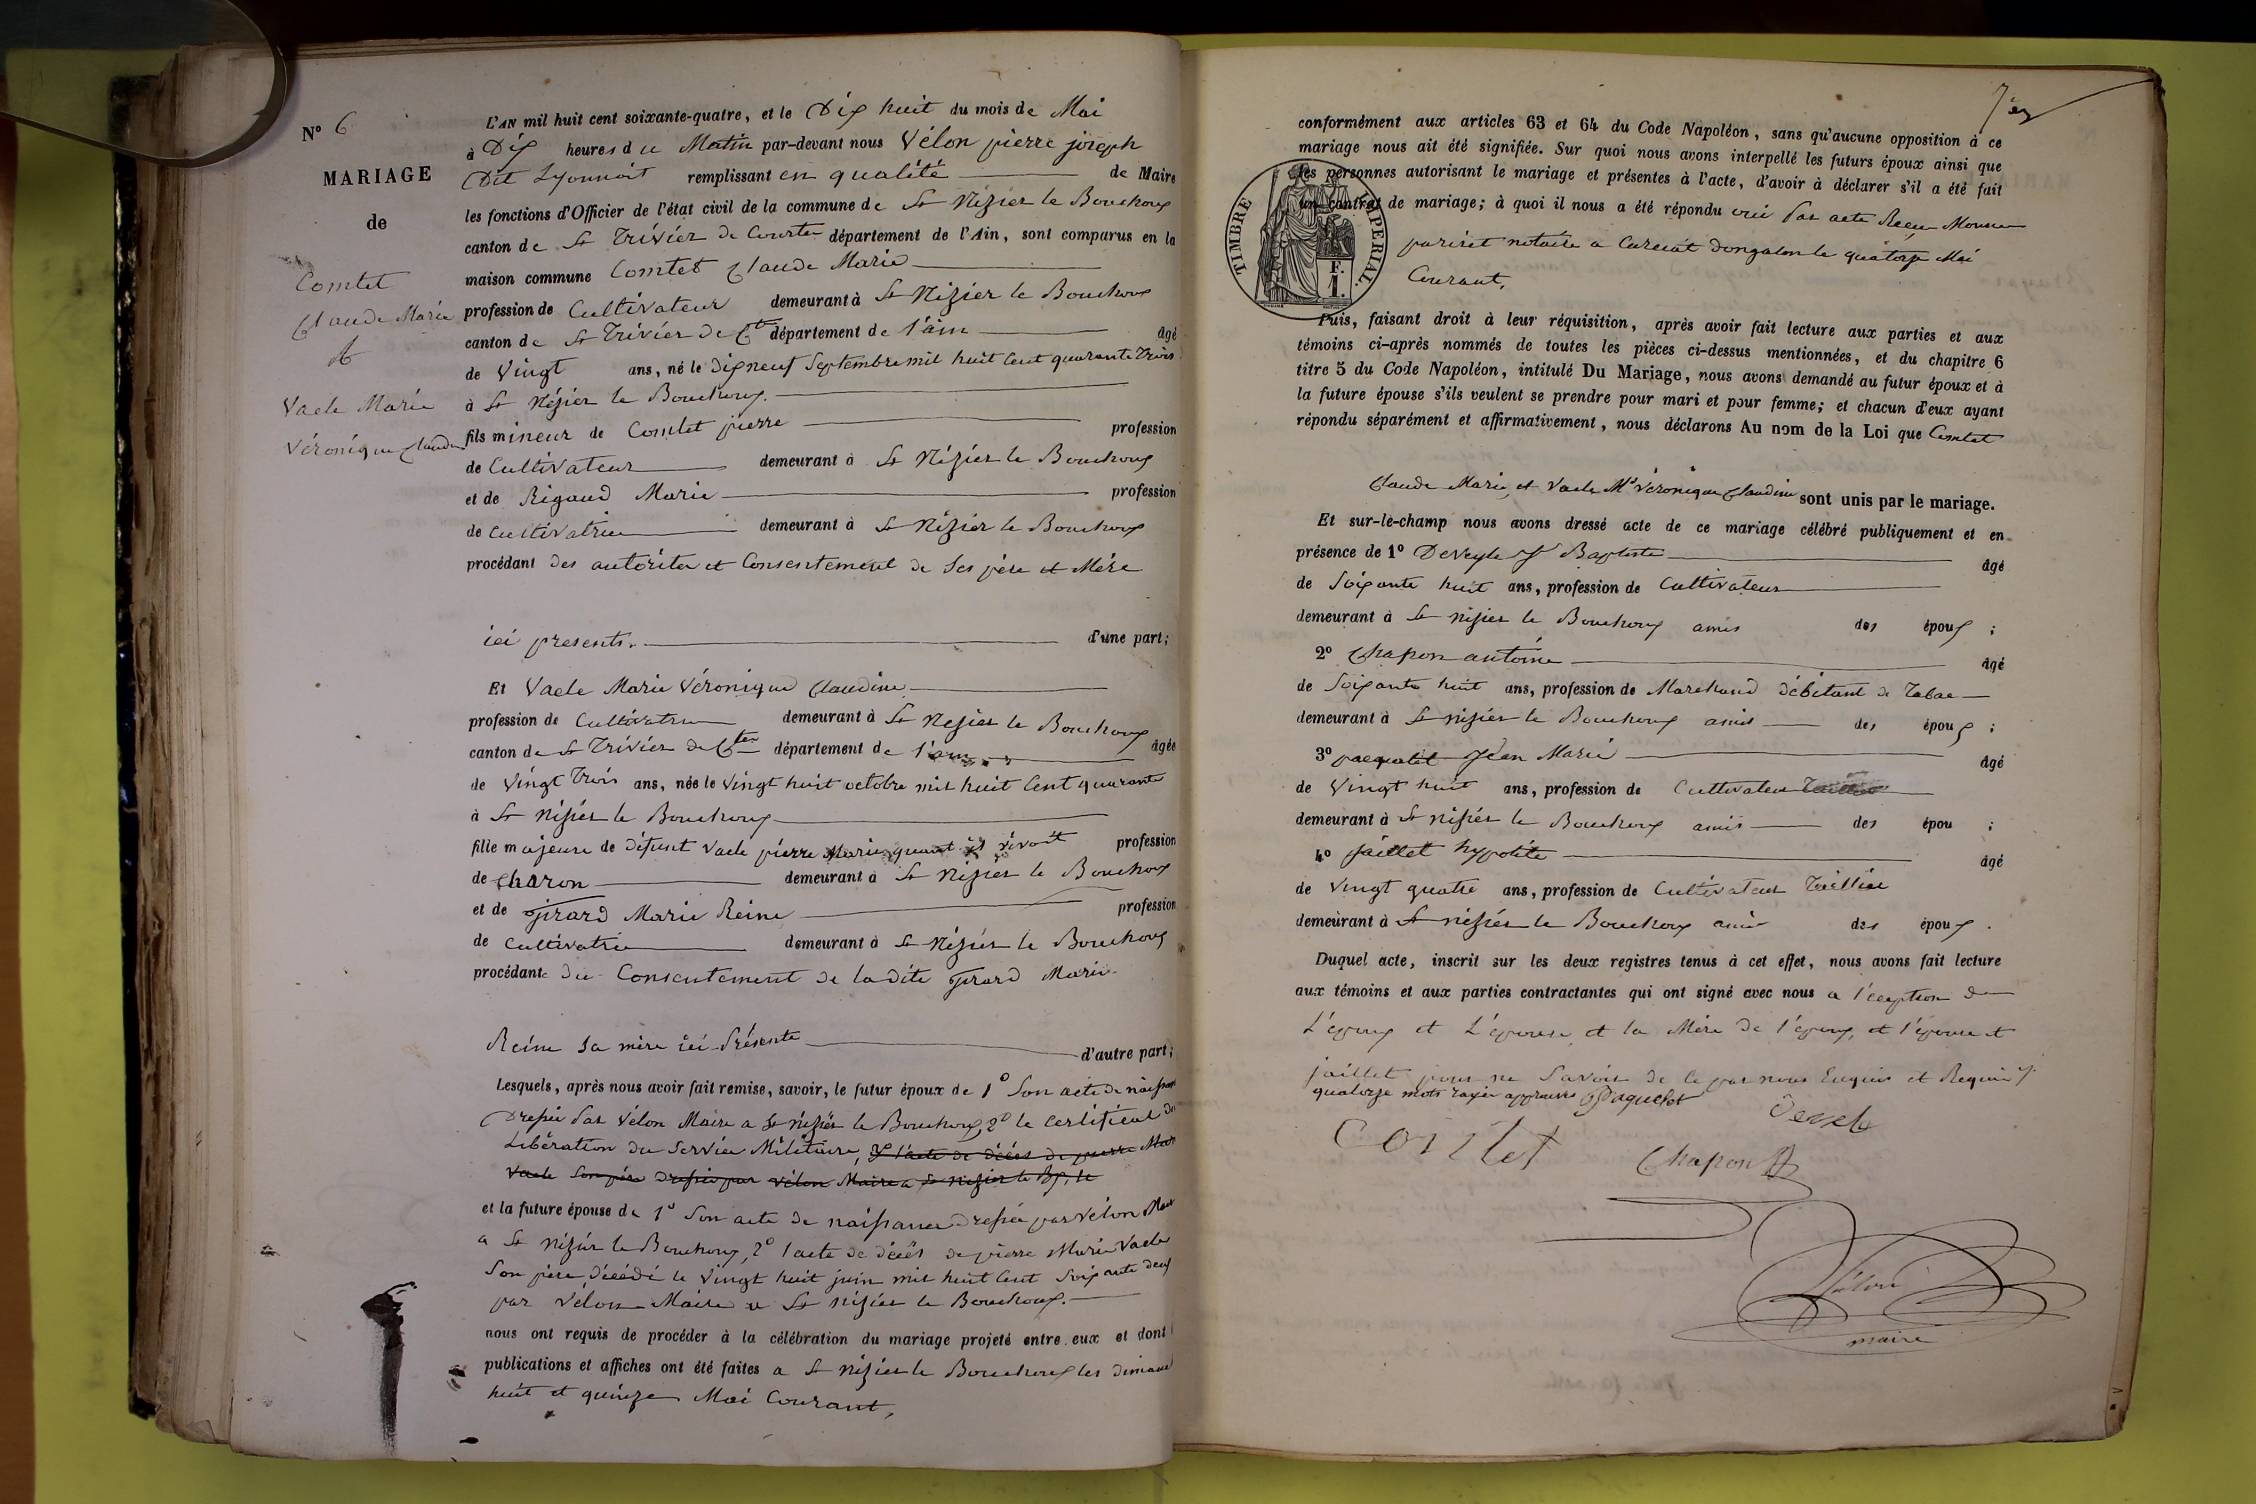 N° 6
MARIAGE
de
Comtet
Claude Marie
&
Vacle Marie
Véronique Claudine
L'AN mil huit cent soixante-quatre, et le Dix huit du mois de Mai
à Dix heures du Matin par-devant nous Vélon pierre joseph
Dit Lyonnois remplissant en qualité de Maire
les fonctions d'Officier de l'état civil de la commune de St Nizier le Bouchoux
canton de St Trivier de Courtes département de l'Ain, sont comparus en la
maison commune Comtet Claude Marie
profession de Cultivateur demeurant à St Nizier le Bouchoux
canton de St Trivier de Ctes département de l'ain âgé
de Vingt ans, né le dix neuf Septembre mil huit Cent quarante Trois
à St Nizier le Bouchoux.
fils mineur de Comtet pierre profession
de Cultivateur demeurant à St Nizier le Bouchoux
et de Rigaud Marie profession
de Cultivatrice demeurant à St Nizier le Bouchoux
procédant des autorités et Consentement de Ses père et Mère
ici presents. d'une part;
Et Vacle Marie Véronique Claudine
profession de Cultivatrice demeurant à St Nezier le Bouchoux
canton de St Trivier de Ctes département de l'ain âgée
de Vingt Trois ans, née le Vingt huit octobre mil huit Cent quarante
à St Nizier le Bouchoux
fille majeure de défunt Vacle pierre Marie quant il vivoit profession
de Charon demeurant à St Nizier le Bouchoux
et de Girard Marie Reine profession
de Cultivatrice demeurant à St Nézier le Bouchoux
procédante du Consentement de ladite Girard Marie
Reine Sa mère ici Présente d'autre part;
Lesquels, après nous avoir fait remise, savoir, le futur époux de 1° Son acte de naissance
Dressé Par Vélon Maire a St Nizier le Bouchoux, 2° le certificat de
Libération du Service Militaire, 3° l'acte de décès de pierre Marie
Vacle Son père dressé par Vélon Maire a St Nizier le Bx, le
et la future épouse de 1° Son acte de naissance dressé par Vélon Maire
a St Nizier le Bouchoux, 2° l'acte de décès de pierre Marie Vacle
Son père, décédé le Vingt huit juin mil huit Cent Soixante deux
par Vélon Maire a St Nizier le Bouchoux.
nous ont requis de procéder à la célébration du mariage projeté entre eux et dont
publications et affiches ont été faites a St Nizier le Bouchoux les dimanch
huit et quinze Mai Courant,
conformément aux articles 63 et 64 du Code Napoléon, sans qu'aucune opposition à ce
mariage nous ait été signifiée. Sur quoi nous avons interpellé les futurs époux ainsi que
les personnes autorisant le mariage et présentes à l'acte, d'avoir à déclarer s'il a été fait
un contrat de mariage; à quoi il nous a été répondu oui Par acte Reçu
notaire a Curciat dongalon le quatorze Mai
Courant,
TIMBRE IMPERIAL.
F.
1.
Puis, faisant droit à leur réquisition, après avoir fait lecture aux parties et aux
témoins ci-après nommés de toutes les pièces ci-dessus mentionnées, et du chapitre 6
titre 5 du Code Napoléon, intitulé Du Mariage, nous avons demandé au futur époux et à
la future épouse s'ils veulent se prendre pour mari et pour femme; et chacun d'eux ayant
répondu séparément et affirmativement, nous déclarons Au nom de la Loi que Comtet
Claude Marie, et Vacle Mie Véronique Claudine sont unis par le mariage.
Et sur-le-champ nous avons dressé acte de ce mariage célébré publiquement et en
présence de 1° Deveyle Jn Baptiste âgé
de Soixante huit ans, profession de Cultivateur
demeurant à St nizier le Bouchoux amis des époux ;
2° Chapon antoine âgé
de Soixante huit ans, profession de Marchand débitant de Tabac
demeurant à St nizier le Bouchoux amis des époux ;
3° paquelet Jean Marie âgé
de Vingt huit ans, profession de Cultivateur
demeurant à St nizier le Bouchoux amis des épou ;
4° jaillet hypolite âgé
de Vingt quatre ans, profession de Cultivateur Taillieu
demeurant à St nézier le Bouchoux amis des époux .
Duquel acte, inscrit sur les deux registres tenus à cet effet, nous avons fait lecture
aux témoins et aux parties contractantes qui ont signé avec nous a l'éception de
L'époux et L'épouse, et la Mère de l'époux, et l'épouse et
jaillet pour ne Savoir de ce par nous Enquis et Requis
quatorze mots rayés approuvés Paquelet
Comtet
Chapon
Vélon
maire